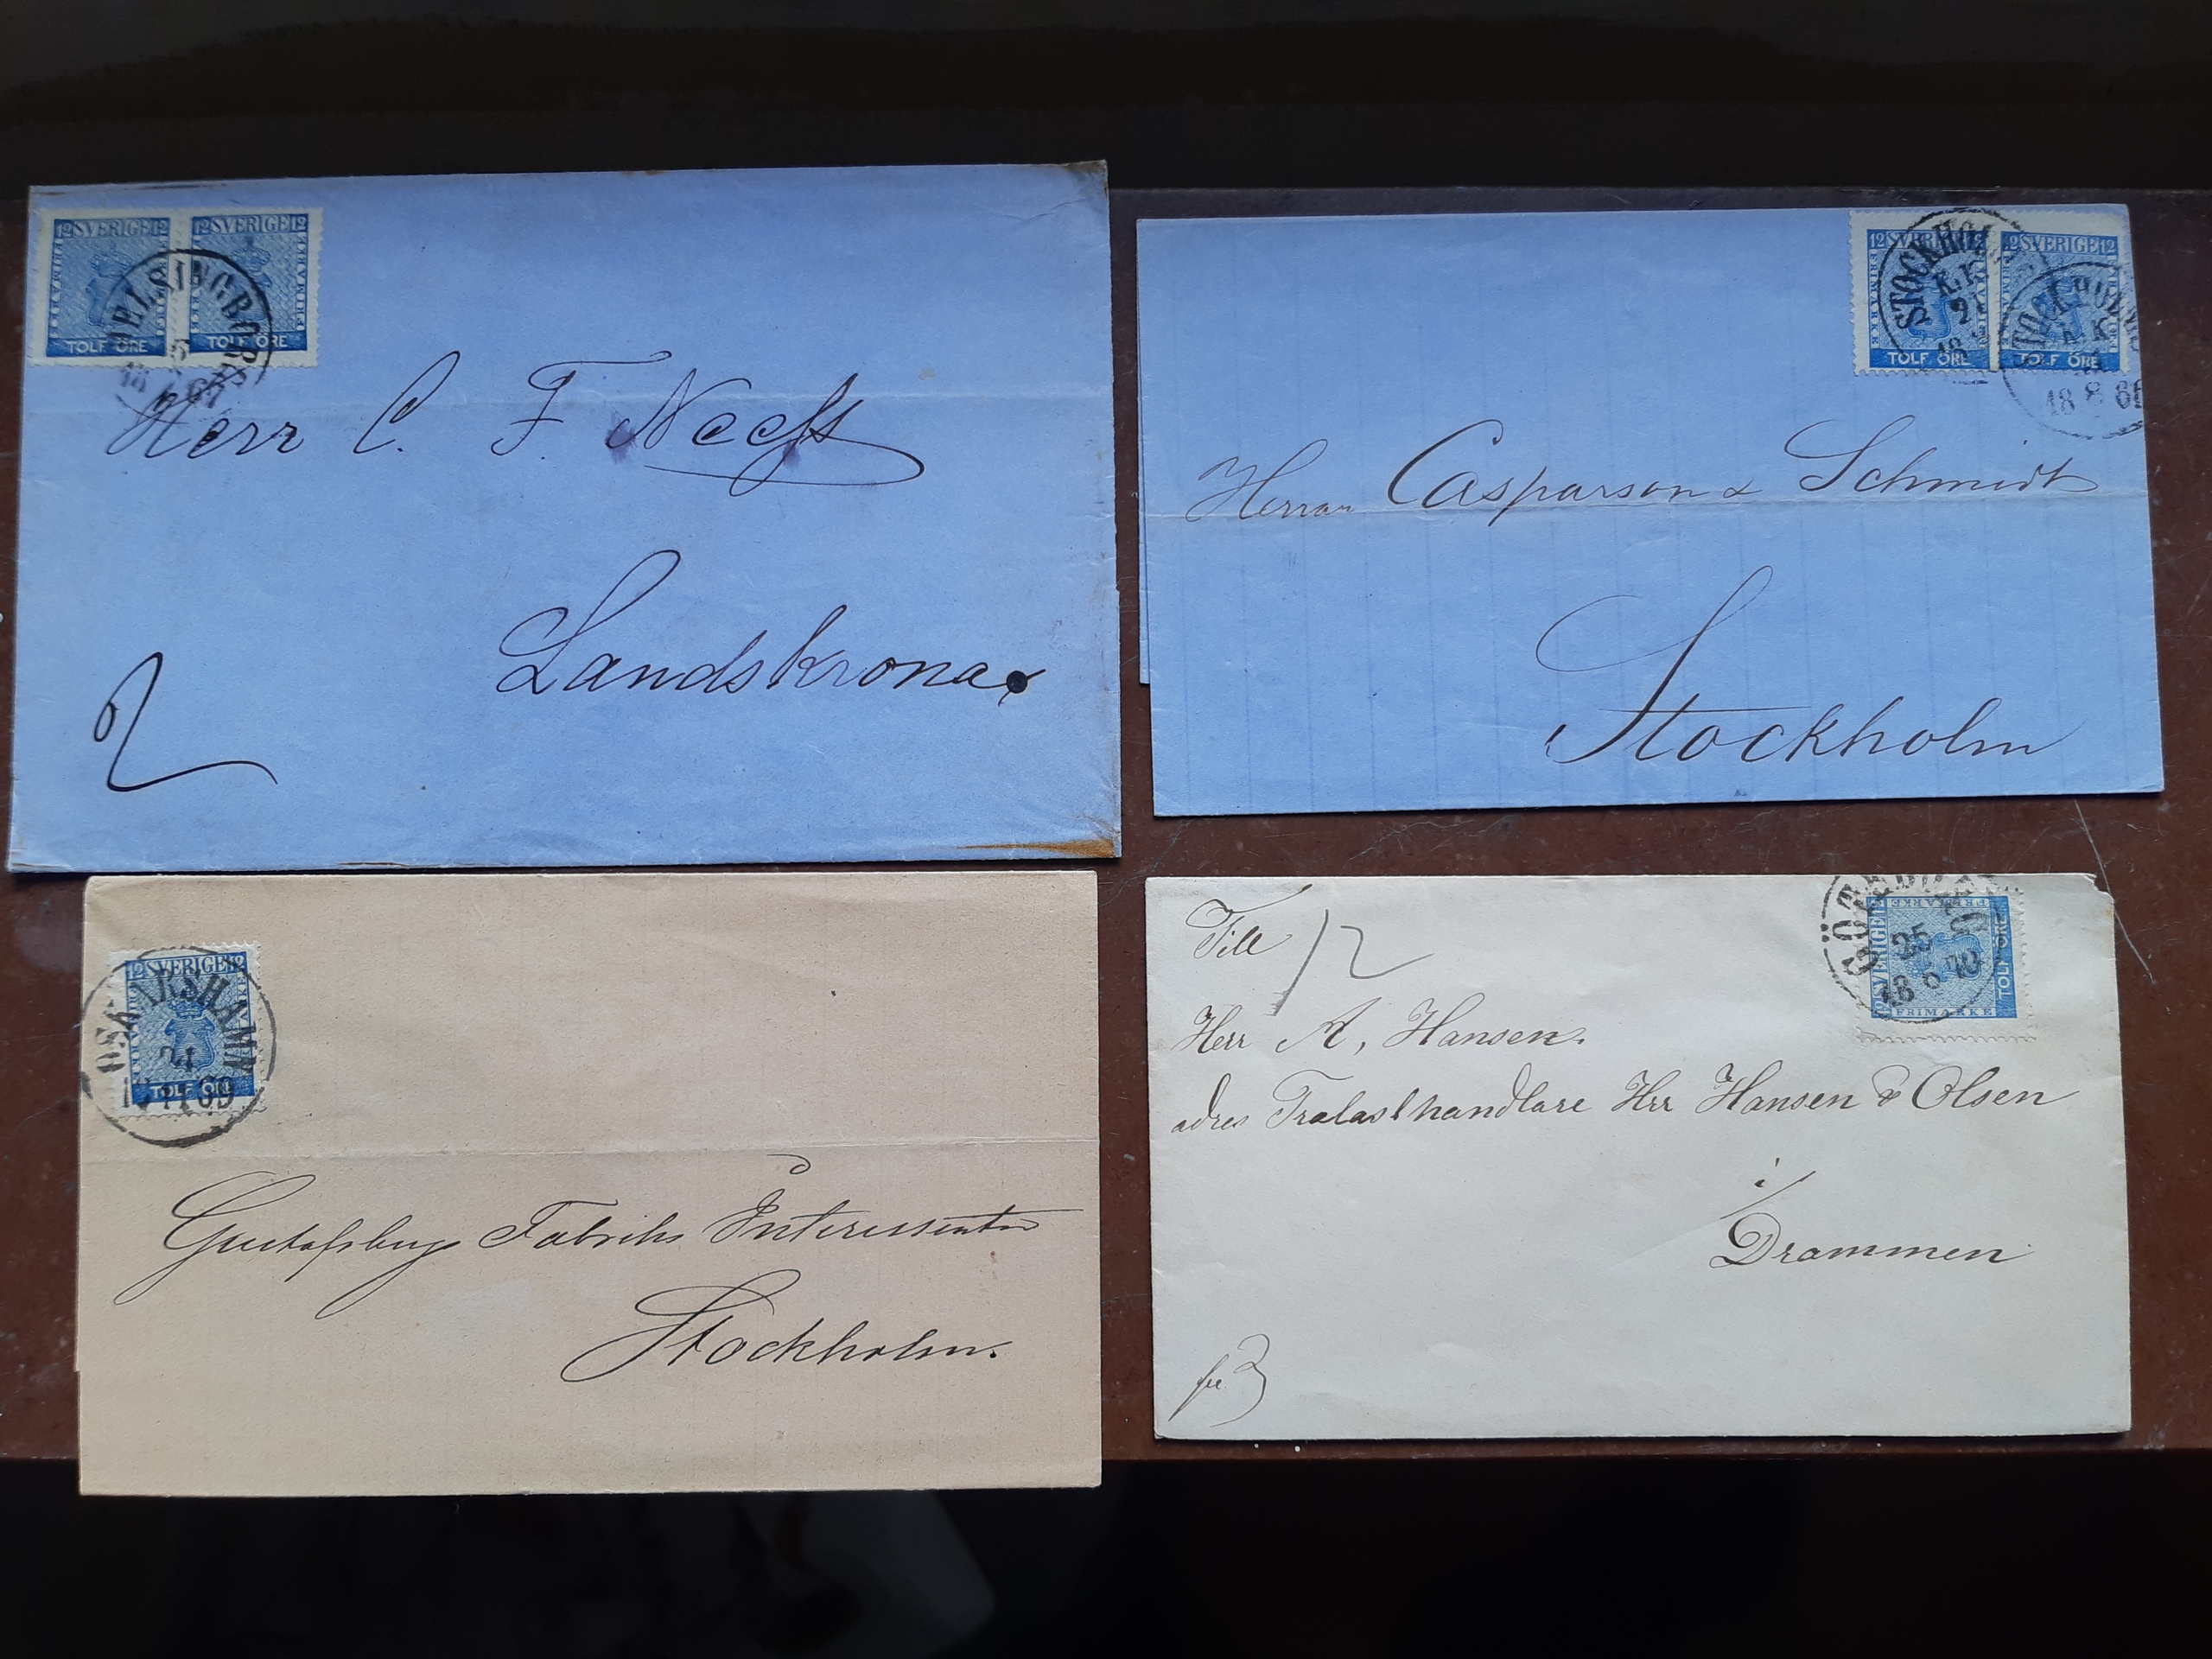 12 SVERIGE 12
TOLF ÖRE
12 SVERIGE 12
TOLF ÖRE
HELSINGBORG
5
18 67
Herr C. F. Neess
Landskrona
2
12 SVERIGE 12
TOLF ÖRE
12 SVERIGE 12
TOLF ÖRE
STOCKHOLM
K.K.
STOCKHOLM
18 8 66
Herrar Casparson & Schmidt
Stockholm
12 SVERIGE 12
TOLF ÖRE
OSKARSHAMN
24
18 11 69
Gustafsbergs Fabriks Interessenter
Stockholm.
12 SVERIGE 12
FRIMÄRKE
FRIMÄRKE
TOLF ÖRE
GÖTEBORG
25
18 6 70
Till
12
Herr A, Hansen.
adres Tralasthandlare Hrr Hansen & Olsen
i
Drammen